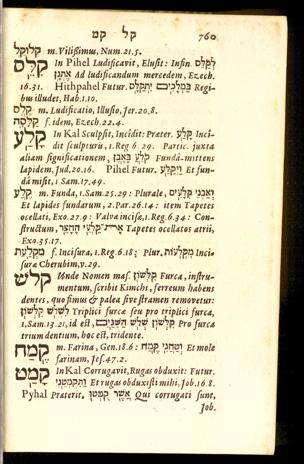 קל קמ 760
קְלוֹקֵל m. Vilissimus, Num. 21. 5.
קָלַס In Pihel Ludificavit, Elusit: Infin. לְקַלֵּס
אֶתְנָן Ad ludificandum mercedem, Ezech.
16. 31. Hithpahel Futur. בַּמְּלָכִים יִתְקַלָּס Regi-
bus illudet, Hab. 1. 10.
קֶלֶס m. Ludificatio, Illusio, Jer. 20. 8.
קַלָּסָה f. idem, Ezech. 22. 4.
קָלַע In Kal Sculpsit, Incîdit: Præter. קָלַע Incî-
dit sculpturis, 1. Reg. 6. 29. Partic. juxta
aliam significationem, קֹלֵעַ בָּאֶבֶן Fundâ mittens
lapidem, Jud. 20. 16. Pihel Futur. וַיְקַלַּע Et fun-
dâ misit, 1 Sam. 17. 49.
קֶלַע m. Funda, 1. Sam. 25. 29: Plurale, וְאַבְנֵי קְלָעִים
Et lapides fundarum, 2. Par. 26. 14: item Tapetes
ocellati, Exo. 27. 9: Valva incisa, 1. Reg. 6. 34: Con-
structum, אֵת קַלְעֵי הֶחָצֵר Tapetes ocellatos atrii,
Exo. 35. 17.
מִקְלַעַת f. Incisura, 1. Reg. 6. 18; Plur. מִקְלְעוֹת Inci-
suræ Cherubim, v. 29.
קלש Unde Nomen mas. קִלְּשׁוֹן Furca, instru-
mentum, scribit Kimchi, ferreum habens
dentes, quo fimus & palea sive stramen removetur:
לִשְׁלֹשׁ קִלְּשׁוֹן Triplici furcæ seu pro triplici furca,
1. Sam. 13. 21, id est, קִלְּשׁוֹן שְׁלֹשׁ הַשִּׁנַּיִם Pro furca
trium dentium, hoc est, tridente.
קֶמַח m. Farina, Gen. 18. 6: וְטַחֲנִי קָמַח Et mole
farinam, Jes. 47. 2.
קָמַט In Kal Corrugavit, Rugas obduxit: Futur.
וַתִּקְמְטֵנִי Et rugas obduxisti mihi, Job. 16. 8.
Pyhal Præterit. אֲשֶׁר קֻמְּטוּ Qui corrugati sunt,
Job.